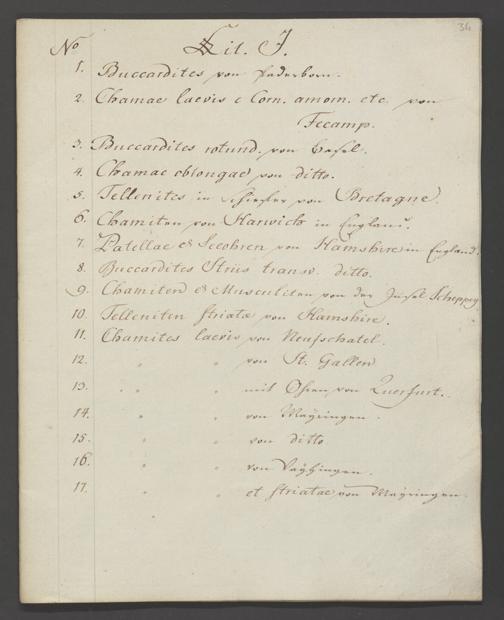 36
No Lit. J.
1. Buccardites von Paderborn.
2. Chamae laevis c Corn. amom. etc. von
Fecamp.
3. Buccardites rotund. von Basel.
4. Chamae oblongae von ditto.
5. Tellenites in Schiefer von Bretagne.
6. Chamiten von Harwich in England.
7. Patellae et von Hamshire in England.
8. Buccardites Striis transv. ditto.
9. Chamiten et Musculiten von der Insel Scheppey
10. Telleniten striatae von Hamshire.
11. Chamites laevis von Neufschatel.
12. " " von St. Gallen
13. " " mit Ohren von Querfurt.
14. " " von Mayringen.
15. " " von ditto
16. " " von
17. " " et striatae von Mayringen.